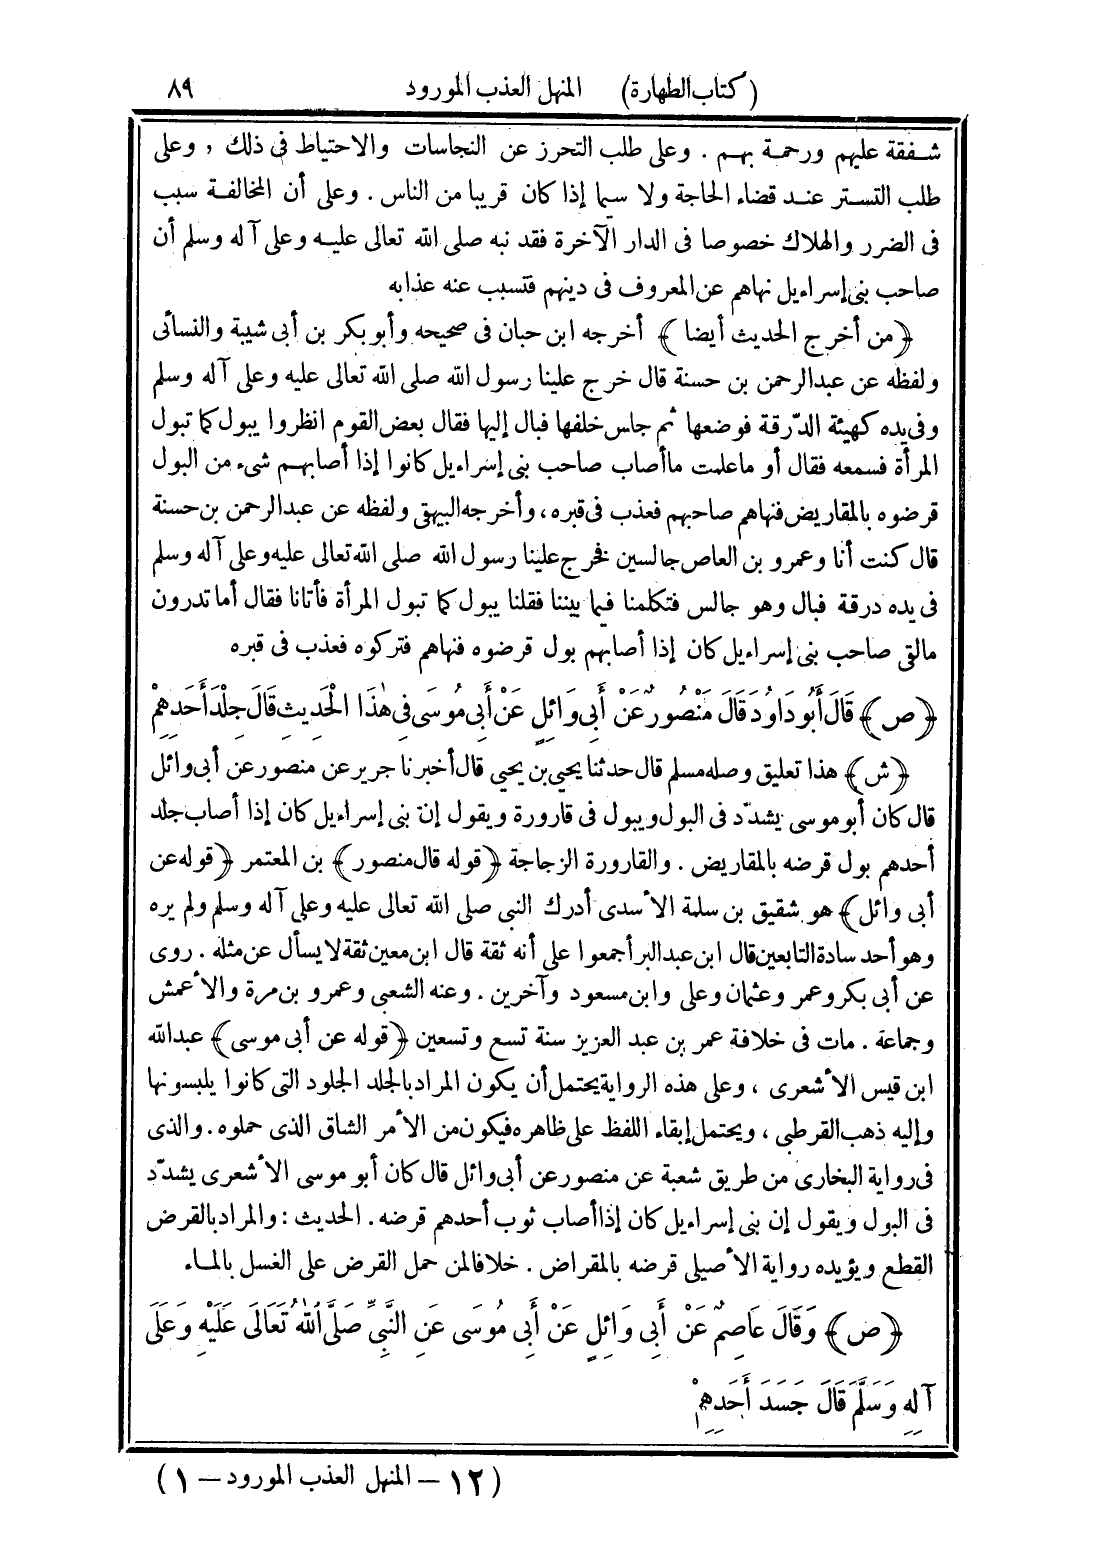 (كتاب الطهارة) المنهل العذب المورود ٨٩
شفقة عليهم ورحمة بهم . وعلى طلب التحرز عن النجاسات والاحتياط فى ذلك , وعلى
طلب التستر عند قضاء الحاجة ولا سيما إذا كان قريبا من الناس . وعلى أن المخالفة سبب
فى الضرر والهلاك خصوصا فى الدار الآخرة فقد نبه صلى الله تعالى عليه وعلى آله وسلم أن
صاحب بنى إسراءيل نهاهم عن المعروف فى دينهم فتسبب عنه عذابه
﴿من أخرج الحديث أيضا﴾ أخرجه ابن حبان فى صحيحه وأبو بكر بن أبى شيبة والنسائى
ولفظه عن عبدالرحمن بن حسنة قال خرج علينا رسول الله صلى الله تعالى عليه وعلى آله وسلم
وفى يده كهيئة الدّرقة فوضعها ثم جلس خلفها فبال إليها فقال بعض القوم انظروا يبول كما تبول
المرأة فسمعه فقال أو ماعلمت ماأصاب صاحب بنى إسراءيل كانوا إذا أصابهم شىء من البول
قرضوه بالمقاريض فنهاهم صاحبهم فعذب فى قبره ، وأخرجه البيهقى ولفظه عن عبدالرحمن بن حسنة
قال كنت أنا وعمرو بن العاص جالسين فخرج علينا رسول الله صلى الله تعالى عليه وعلى آله وسلم
فى يده درقة فبال وهو جالس فتكلمنا فيما بيننا فقلنا يبول كما تبول المرأة فأتانا فقال أما تدرون
مالقى صاحب بنى إسراءيل كان إذا أصابهم بول قرضوه فنهاهم فتركوه فعذب فى قبره
﴿ص﴾ قَالَ أَبُو دَاوُدَ قَالَ مَنْصُورٌ عَنْ أَبِى وَائِلٍ عَنْ أَبِى مُوسَى فِى هٰذَا الْحَدِيثِ قَالَ جِلْدَ أَحَدِهِمْ
﴿ش﴾ هذا تعليق وصله مسلم قال حدثنا يحيى بن يحيى قال أخبرنا جرير عن منصور عن أبى وائل
قال كان أبو موسى يشدّد فى البول ويبول فى قارورة ويقول إن بنى إسراءيل كان إذا أصاب جلد
أحدهم بول قرضه بالمقاريض . والقارورة الزجاجة ﴿قوله قال منصور﴾ بن المعتمر ﴿قوله عن
أبى وائل﴾ هو شقيق بن سلمة الأسدى أدرك النبى صلى الله تعالى عليه وعلى آله وسلم ولم يره
وهو أحد سادة التابعين قال ابن عبد البر أجمعوا على أنه ثقة قال ابن معين ثقة لا يسأل عن مثله . روى
عن أبى بكر وعمر وعثمان وعلى وابن مسعود وآخرين . وعنه الشعبى وعمرو بن مرة والأعمش
وجماعة . مات فى خلافة عمر بن عبد العزيز سنة تسع وتسعين ﴿قوله عن أبى موسى﴾ عبدالله
ابن قيس الأشعرى ، وعلى هذه الرواية يحتمل أن يكون المراد بالجلد الجلود التى كانوا يلبسونها
وإليه ذهب القرطبى ، ويحتمل إبقاء اللفظ على ظاهره فيكون من الأمر الشاق الذى حملوه . والذى
فى رواية البخارى من طريق شعبة عن منصور عن أبى وائل قال كان أبو موسى الأشعرى يشدّد
فى البول ويقول إن بنى إسراءيل كان إذا أصاب ثوب أحدهم قرضه . الحديث : والمراد بالقرض
القطع ويؤيده رواية الأصيلى قرضه بالمقراض . خلافا لمن حمل القرض على الغسل بالماء
﴿ص﴾ وَقَالَ عَاصِمٌ عَنْ أَبِى وَائِلٍ عَنْ أَبِى مُوسَى عَنِ النَّبِىِّ صَلَّى اللهُ تَعَالَى عَلَيْهِ وَعَلَى
آلِهِ وَسَلَّمَ قَالَ جَسَدَ أَحَدِهِمْ
(١٢ – المنهل العذب المورود – ١)